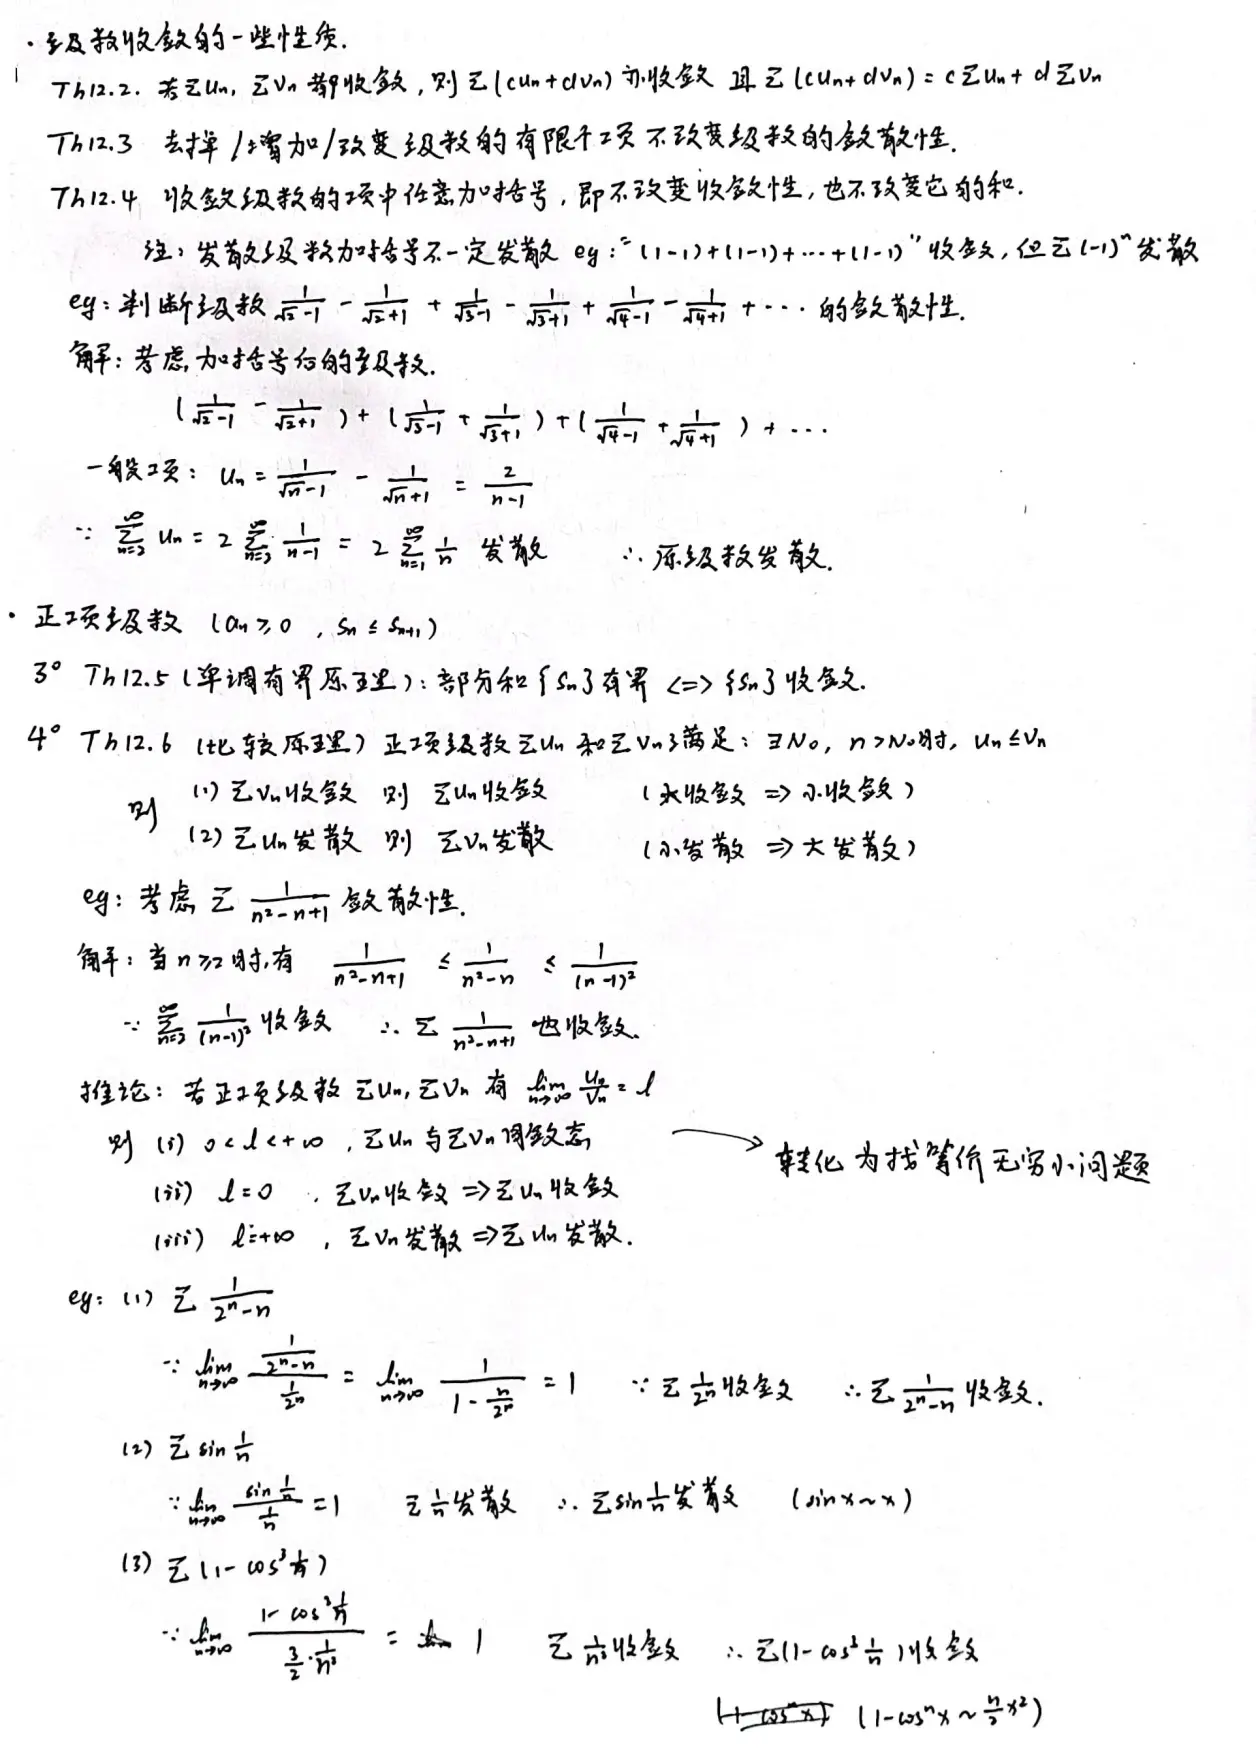 · 级数收敛的一些性质.
Th12.2. 若Σun, Σvn 都收敛, 则 Σ(cun+dvn) 亦收敛 且 Σ(cun+dvn) = cΣun + dΣvn
Th12.3 去掉/增加/改变级数的有限个项不改变级数的敛散性.
Th12.4 收敛级数的项中任意加括号, 即不改变收敛性, 也不改变它的和.
注: 发散级数加括号不一定发散 eg: "(1-1)+(1-1)+…+(1-1)" 收敛, 但Σ(-1)^n 发散
eg: 判断级数 1/(√2-1) - 1/(√2+1) + 1/(√3-1) - 1/(√3+1) + 1/(√4-1) - 1/(√4+1) + … 的敛散性.
解: 考虑加括号后的级数.
(1/(√2-1) - 1/(√2+1)) + (1/(√3-1) + 1/(√3+1)) + (1/(√4-1) + 1/(√4+1)) + …
一般项: un = 1/(√n-1) - 1/(√n+1) = 2/(n-1)
∵ Σ_{n=2}^∞ un = 2Σ_{n=2}^∞ 1/(n-1) = 2Σ_{n=1}^∞ 1/n 发散 ∴ 原级数发散.
· 正项级数 (an≥0, Sn≤Sn+1)
3° Th12.5 (单调有界原理): 部分和{Sn}有界 <=> {Sn}收敛.
4° Th12.6 (比较原理) 正项级数Σun和Σvn满足: ∃N0, n>N0时, un≤vn
则 (1) Σvn收敛 则 Σun收敛 (大收敛 => 小收敛)
(2) Σun发散 则 Σvn发散 (小发散 => 大发散)
eg: 考虑 Σ 1/(n²-n+1) 敛散性.
解: 当n≥2时,有 1/(n²-n+1) ≤ 1/(n²-n) ≤ 1/(n-1)²
∵ Σ_{n=2}^∞ 1/(n-1)² 收敛 ∴ Σ 1/(n²-n+1) 也收敛.
推论: 若正项级数 Σun, Σvn 有 lim_{n→∞} un/vn = l
则 (i) 0<l<+∞, Σun与Σvn同敛态 → 转化为找等价无穷小问题
(ii) l=0, Σvn收敛 => Σun收敛
(iii) l=+∞, Σvn发散 => Σun发散.
eg: (1) Σ 1/(2^n-n)
∵ lim_{n→∞} (1/(2^n-n))/(1/2^n) = lim_{n→∞} 1/(1-n/2^n) = 1 ∵ Σ 1/2^n 收敛 ∴ Σ 1/(2^n-n) 收敛.
(2) Σ sin 1/n
∵ lim_{n→∞} (sin 1/n)/(1/n) = 1 Σ 1/n 发散 ∴ Σ sin 1/n 发散 (sinx~x)
(3) Σ(1-cos³ 1/n)
∵ lim_{n→∞} (1-cos³ 1/n)/(3/2 · 1/n²) = 1 Σ 1/n² 收敛 ∴ Σ(1-cos³ 1/n) 收敛
(1-cos^n x ~ n/2 x²)